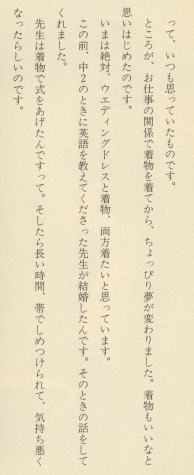 って、いつも思っていたものです。
ところが、お仕事の関係で着物を着てから、ちょっぴり夢が変わりました。着物もいいなと
思いはじめたのです。
いまは絶対、ウエディングドレスと着物、両方着たいと思っています。
この前、中2のときに英語を教えてくださった先生が結婚したんです。そのときの話をして
くれました。
先生は着物で式をあげたんですって。そしたら長い時間、帯でしめつけられて、気持ち悪く
なったらしいのです。